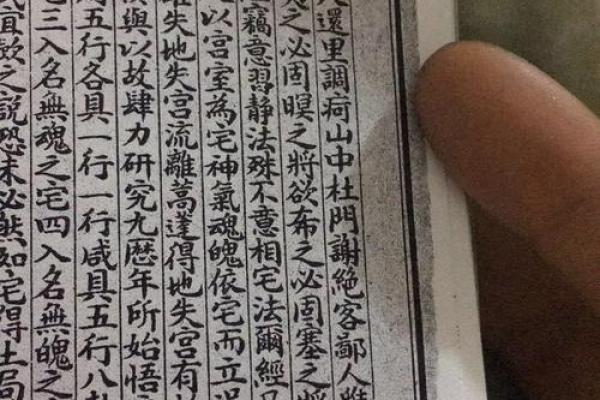 還里調疴山中杜門謝絕客鄙人
之必固暝之將欲布之必固塞之將
竊意習静法殊不意相宅法爾經
以宫室為宅神氣魂魄依宅而立
失地失宫流離蒿蓬得地失宫有
與以故肆力研究九歷年所始悟
五行各具一行一行咸具五行八
三入名無魂之宅四入名無魄之
宜款之說恐未必然如宅得土局